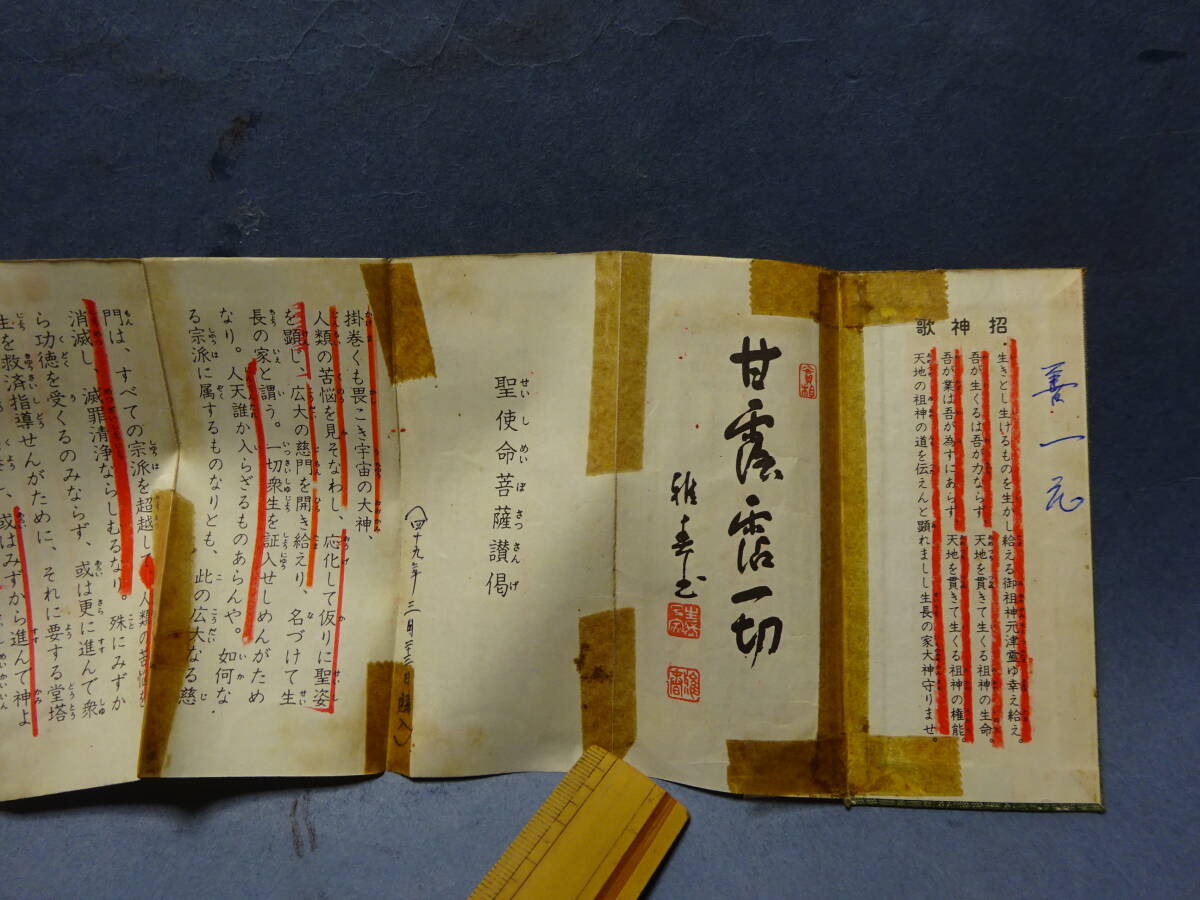 善一元
招神歌
生きとし生けるものを生かし給える御祖神元津霊ゆ幸え給え。
吾が生くるは吾が力ならず、天地を貫きて生くる祖神の生命。
吾が業は吾が為すにあらず、天地を貫きて生くる祖神の権能。
天地の祖神の道を伝えんと顕れましし生長の家大神守りませ。
實相
甘露霑一切
雅春書
聖使命菩薩讃偈
(四十九年三月
購入)
掛巻くも畏こき宇宙の大神、
人類の苦悩を見そなわし、応化して仮りに聖姿
を顕じ、広大の慈門を開き給えり、名づけて生
長の家と謂う。一切衆生を証入せしめんがため
なり。人天誰か入らざるものあらんや。如何な
る宗派に属するものなりとも、此の広大なる慈
門は、すべての宗派を超越し 人類の苦悩を
消滅し、滅罪清浄ならしむるなり。殊にみずか
ら功徳を受くるのみならず、或は更に進んで衆
生を救済指導せんがために、それに要する堂塔
或はみずから進んで神よ